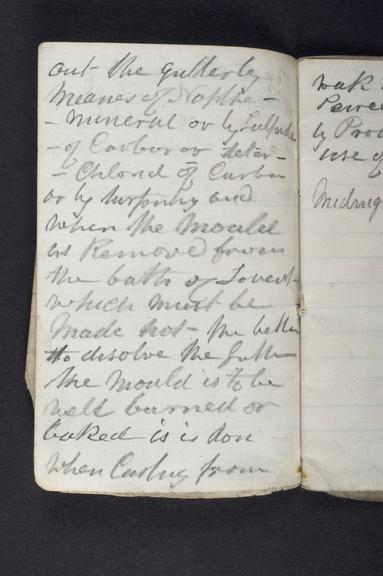 out the gutter by
Meanes of Naptha -
- Mineral or by Sulfide
- of Carbon or
- Chlorid of Carbon
or by turpinty and
when the Mould
is Removed from
the bath of Solvent -
which must be
Made hot - the better
to disolve the Gutta
the Mould is to be
well burned or
baked is is don
when Casting from
wax
by
use of